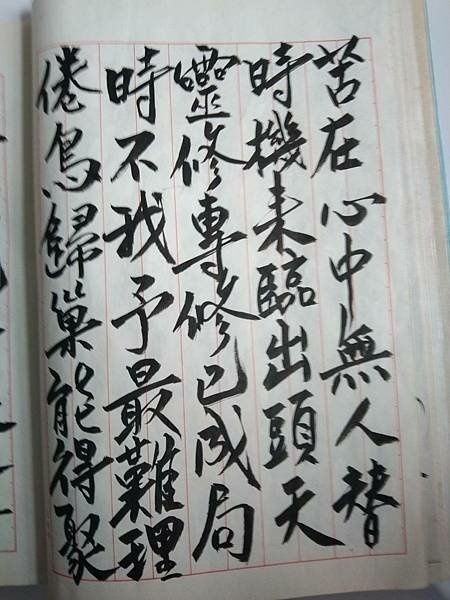 苦在心中無人替
時機未臨出頭天
靈修專修已成局
時不我予最難理
倦鳥歸巢能得聚